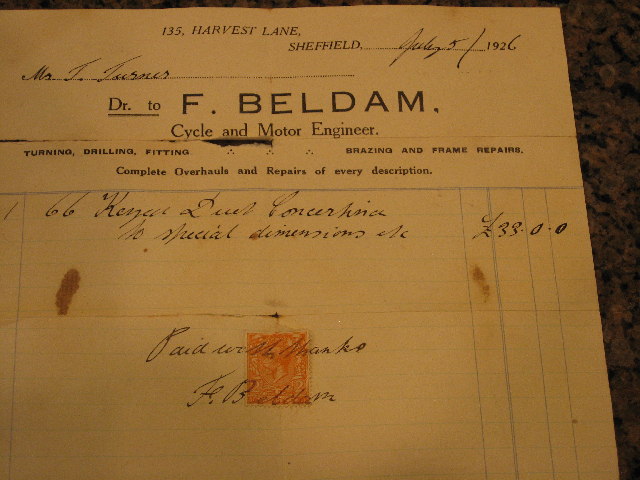 135, HARVEST LANE,
SHEFFIELD, July 5/ 1926
Mr T. Turner
Dr. to F. BELDAM,
Cycle and Motor Engineer.
TURNING, DRILLING, FITTING ∴ ∴ ∴ BRAZING AND FRAME REPAIRS.
Complete Overhauls and Repairs of every description.
1 66 Keyed Duet Concertina
to special dimensions etc £33.0.0
Paid with thanks
F. Beldam